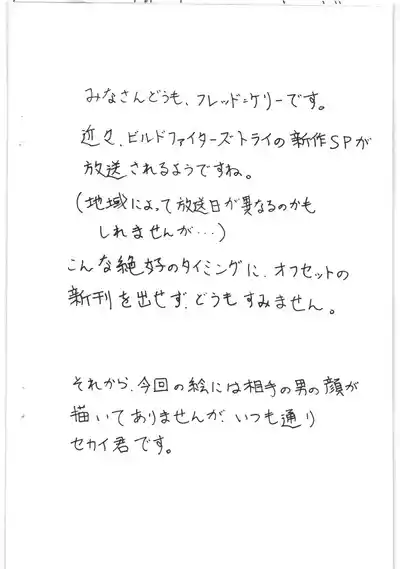 みなさんどうも、フレッド=ケリーです。
近々、ビルドファイターズトライの新作SPが
放送されるようですね。
(地域によって放送日が異なるのかも
しれませんが…)
こんな絶好のタイミングに、オフセットの
新刊を出せず、どうもすみません。
それから、今回の絵には相手の男の顔が
描いてありませんが、いつも通り
セカイ君です。